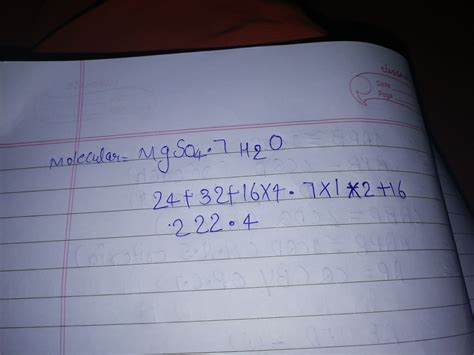 classmate
Date
Page
Molecular = MgSO4.7 H2O
24+32+16×4.7×1×2+16
.222.4